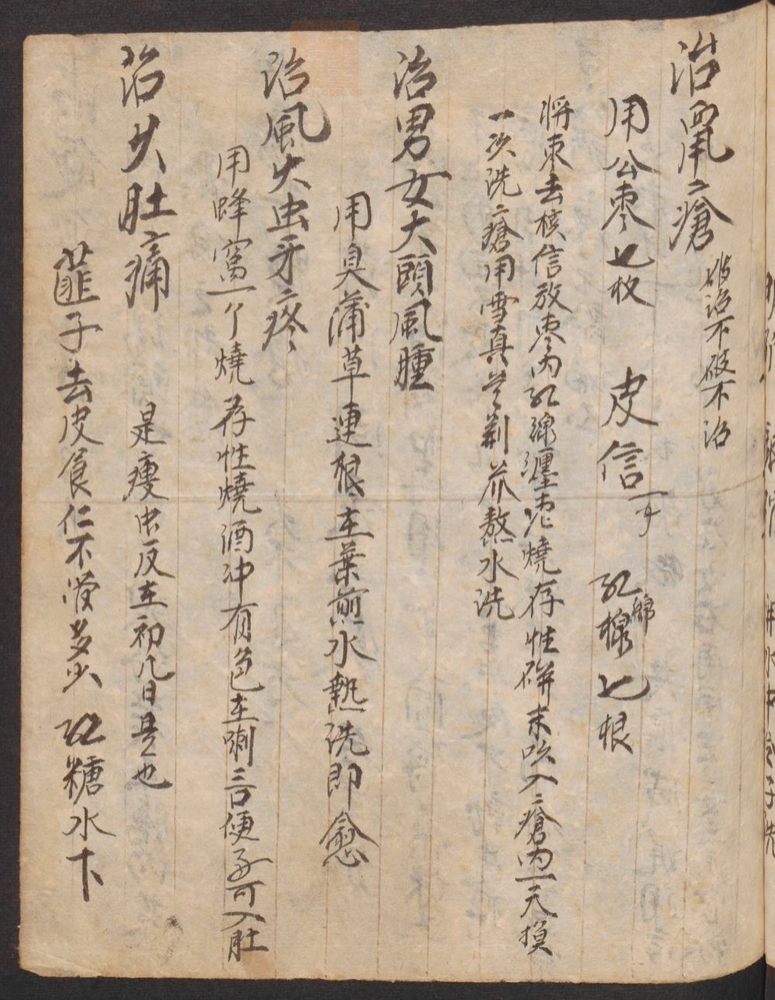 治鼠瘡 破治不破不治
用公枣七枚 皮信一 紅綿線七根
将枣去核信放枣内紅線纏定燒存性研末吹入瘡内一天摸
一次洗瘡用雪真 荆芥熬水洗
治男女大頭風腫
用臭蒲草連根主葉煎水熱洗即愈
治風火虫牙疼
用蜂窩一个燒存性燒酒冲有色主嗽三口便吞可入肚
治大肚痛
是痩虫反主初几日是也
韮子去皮食仁不管多少 紅糖水下